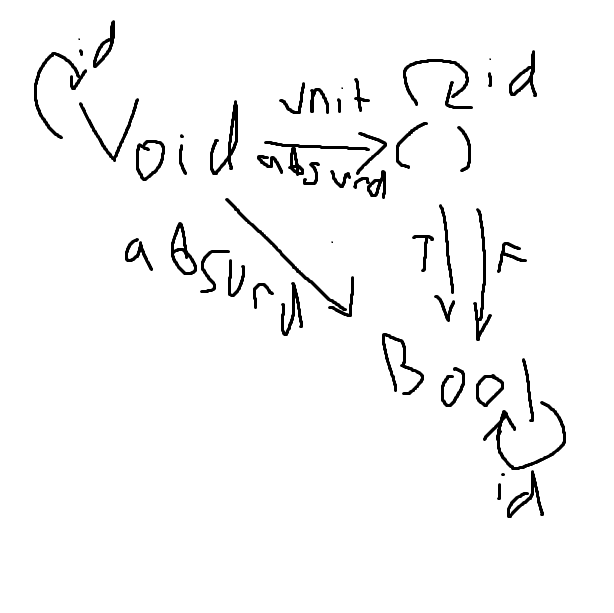 id
Void
unit
absurd
id
()
absurd
T
F
Bool
id